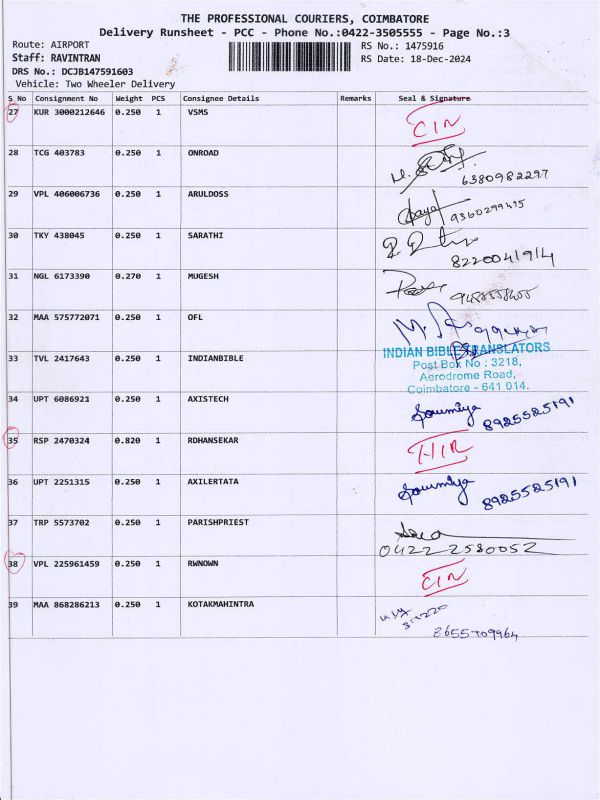 THE PROFESSIONAL COURIERS, COIMBATORE
Delivery Runsheet - PCC - Phone No.:0422-3505555 - Page No.:3
Route: AIRPORT RS No.: 1475916
Staff: RAVINTRAN RS Date: 18-Dec-2024
DRS No.: DCJB147591603
Vehicle: Two Wheeler Delivery
S No Consignment No Weight PCS Consignee Details Remarks Seal & Signature
27 KUR 3000212646 0.250 1 VSMS CIN
28 TCG 403783 0.250 1 ONROAD 6380982297
29 VPL 406006736 0.250 1 ARULDOSS
30 TKY 438045 0.250 1 SARATHI 8220041914
31 NGL 6173390 0.270 1 MUGESH
32 MAA 575772071 0.250 1 OFL
33 TVL 2417643 0.250 1 INDIANBIBLE INDIAN BIBLE TRANSLATORS
Post Box No : 3218,
Aerodrome Road,
Coimbatore - 641 014.
34 UPT 6086921 0.250 1 AXISTECH Soumiya 8925525191
35 RSP 2470324 0.820 1 RDHANSEKAR
36 UPT 2251315 0.250 1 AXILERTATA Soumiya 8925525191
37 TRP 5573702 0.250 1 PARISHPRIEST 0422 2580052
38 VPL 225961459 0.250 1 RWNOWN CIN
39 MAA 868286213 0.250 1 KOTAKMAHINTRA 8655709964